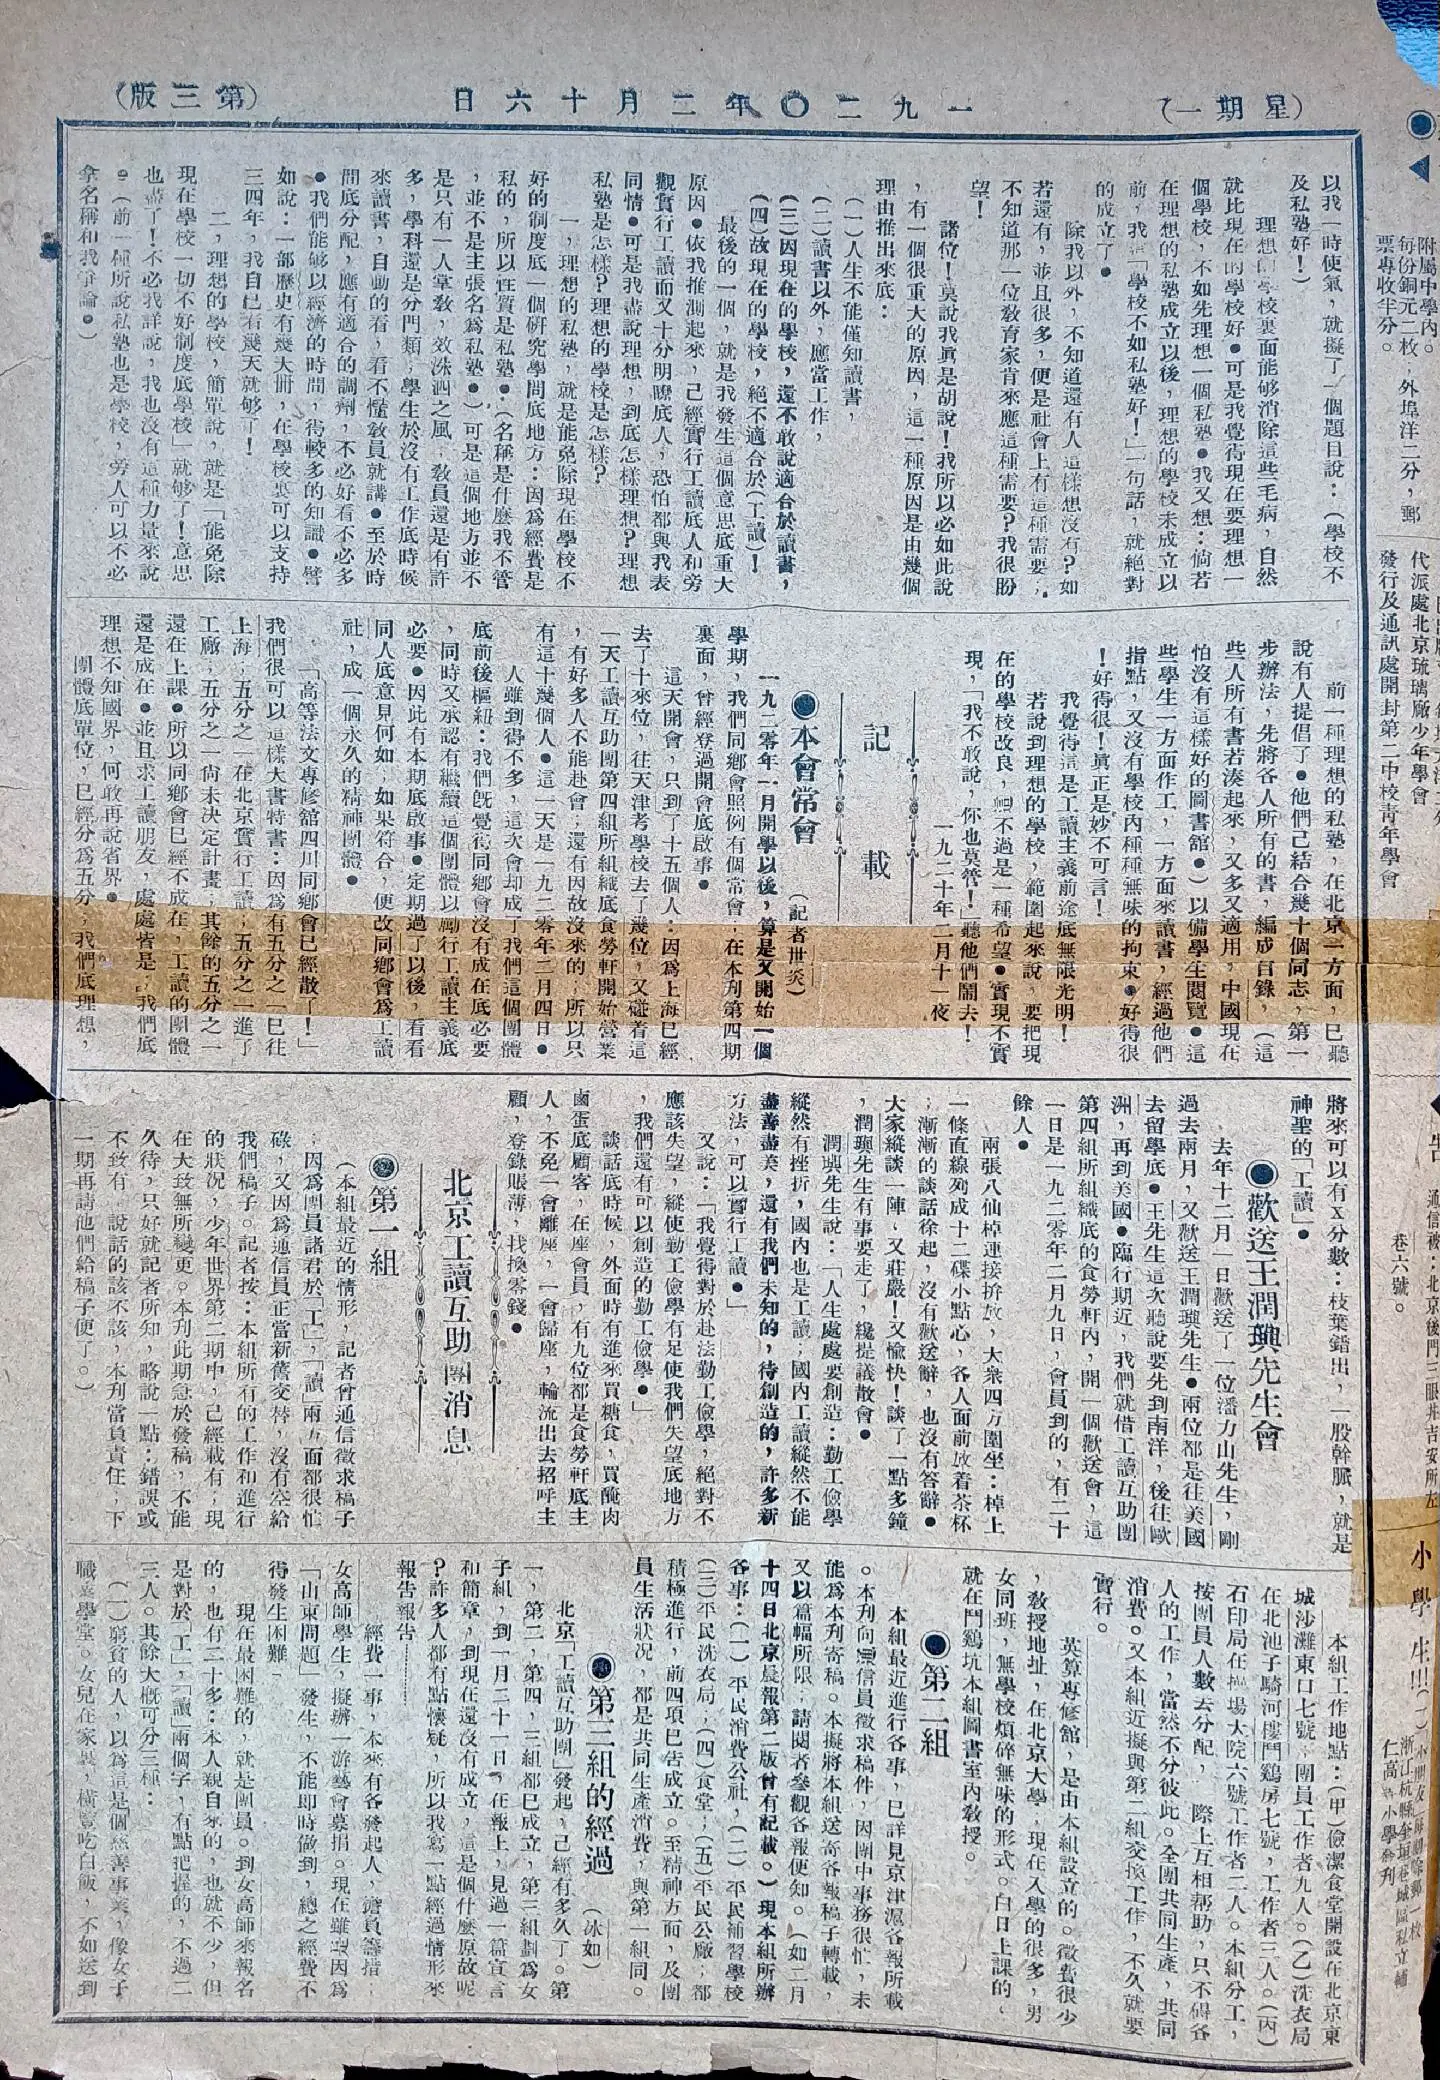 (星期一)
一九二〇年二月十六日
(第三版)
以我一時使氣，就擬了一個題目說：(學校不
及私塾好！)
理想的學校裏面能够消除這些毛病，自然
就比現在的學校好●可是我覺得現在要理想一
個學校，不如先理想一個私塾●我又想：倘若
在理想的私塾成立以後，理想的學校未成立以
前，我「學校不如私塾好！」一句話，就絕對
的成立了●
除我以外，不知道還有人這樣想沒有？如
若還有，並且很多，便是社會上有這種需要；
不知道那一位敎育家肯來應這種需要？我很盼
望！
諸位！莫說我眞是胡說！我所以必如此說
，有一個很重大的原因，這一種原因是由幾個
理由推出來底：
(一)人生不能僅知讀書，
(二)讀書以外，應當工作，
(三)因現在的學校，還不敢說適合於讀書，
(四)故現在的學校，絕不適合於(工讀)！
最後的一個，就是我發生這個意思底重大
原因●依我推測起來，己經實行工讀底人和旁
觀實行工讀而又十分明瞭底人，恐怕都與我表
同情●可是我盡說理想，到底怎樣理想？理想
私塾是怎樣？理想的學校是怎樣？
一，理想的私塾，就是能免除現在學校不
好的制度底一個硏究學問底地方：因爲經費是
私的，所以性質是私塾●(名稱是什麼我不管
，並不是主張名爲私塾●)可是這個地方並不
是只有一人掌敎，效洙泗之風，敎員還是有許
多，學科還是分門類，學生於沒有工作底時候
來讀書，自動的看，看不懂敎員就講●至於時
間底分配，應有適合的調劑，不必好看不必多
●我們能够以經濟的時間，得較多的知識●譬
如說：一部歷史有幾大冊，在學校裏可以支持
三四年，我自己看幾天就够了！
二，理想的學校，簡單說，就是「能免除
現在學校一切不好制度底學校」就够了！意思
也盡了！不必我詳說，我也沒有這種力量來說
●(前一種所說私塾也是學校，旁人可以不必
拿名稱和我爭論●)
前一種理想的私塾，在北京一方面，已聽
說有人提倡了●他們己結合幾十個同志，第一
步辦法，先將各人所有的書，編成目錄，(這
些人所有書若湊起來，又多又適用，中國現在
怕沒有這樣好的圖書館●)以備學生閱覽●這
些學生一方面作工，一方面來讀書，經過他們
指點，又沒有學校內種種無味的拘束●好得很
！好得很！眞正是妙不可言！
我覺待這是工讀主義前途底無限光明！
若說到理想的學校，範圍起來說，要把現
在的學校改良，卽不過是一種希望●實現不實
現，「我不敢說，你也莫管！」聽他們鬧去！
一九二十年二月十一夜
記載
●本會常會
(記者世炎)
一九二零年一月開學以後，算是又開始一個
學期，我們同鄉會照例有個常會，在本刋第四期
裏面，曾經登過開會底啟事●
這天開會，只到了十五個人：因爲上海已經
去了十來位，往天津考學校去了幾位，又碰着這
一天工讀互助團第四組所組織底食勞軒開始營業
，有好多人不能赴會；還有因故沒來的；所以只
有這十幾個人●這一天是一九二零年二月四日●
人雖到得不多，這次會却成了我們這個團體
底前後樞紐：我們旣覺得同鄉會沒有成在底必要
，同時又承認有繼續這個團體以勵行工讀主義底
必要●因此有本期底啟事●定期過了以後，看看
同人底意見何如，如果符合，便改同鄉會爲工讀
社，成一個永久的精神團體●
「高等法文專修舘四川同鄉會已經散了！」
我們很可以這樣大書特書：因爲有五分之一巳往
上海；五分之一在北京實行工讀；五分之一進了
工廠；五分之一尙未決定計畫；其餘的五分之一
還在上課●所以同鄉會已經不成在，工讀的團體
還是成在●並且求工讀朋友，處處皆是；我們底
理想不知國界，何敢再說省界●
團體底單位，已經分爲五分；我們底理想，
將來可以有X分數：枝葉錯出，一股幹脈，就是
神聖的「工讀」●
●歡送王潤璵先生會
去年十二月一日歡送了一位潘力山先生，剛
過去兩月，又歡送王潤璵先生●兩位都是往美國
去留學底●王先生這次聽說要先到南洋，後往歐
洲，再到美國●臨行期近，我們就借工讀互助團
第四組所組織底的食勞軒內，開一個歡送會，這
一日是一九二零年二月九日，會員到的，有二十
餘人●
兩張八仙棹連接拚放，大衆四方圍坐：棹上
一條直線列成十二碟小點心，各人面前放着茶杯
；漸漸的談話徐起，沒有歡送辭，也沒有答辭●
大家縱談一陣，又莊嚴！又愉快！談了一點多鐘
，潤璵先生有事要走了，纔提議散會●
潤璵先生說：「人生處處要創造：勤工儉學
縱然有挫折，國內也是工讀；國內工讀縱然不能
盡善盡美，還有我們未知的，待創造的，許多新
方法，可以實行工讀●」
又說：「我覺得對於赴法勤工儉學，絕對不
應該失望，縱使勤工儉學有足使我們失望底地方
，我們還有可以創造的勤工儉學●」
談話底時候，外面時有進來買糖食，買醃肉
鹵蛋底顧客，在座會員，有九位都是食勞軒底主
人，不免一會離座，一會歸座，輪流出去招呼主
顧，登錄賬薄，找換零錢●
北京工讀互助團消息
●第一組
(本組最近的情形，記者曾通信徵求稿子
；因爲團員諸君於「工」，「讀」兩方面都很忙
碌，又因爲通信員正當新舊交替，沒有空給
我們稿子。記者按：本組所有的工作和進行
的狀況，少年世界第二期中，已經載有；現
在大致無所變更。本刋此期急於發稿，不能
久待，只好就記者所知，略說一點：錯誤或
不致有，說話的該不該，本刋當負責任，下
一期再請他們給稿子便了。)
本組工作地點：(甲)儉潔食堂開設在北京東
城沙灘東口七號，團員工作者九人。(乙)洗衣局
在北池子騎河樓鬥鷄房七號，工作者三人。(丙)
石印局在操場大院六號工作者二人。本組分工，
按團員人數去分配，際上互相帮助，只不碍各
人的工作，當然不分彼此。全團共同生產，共同
消費。又本組近擬與第二組交換工作，不久就要
實行。
英算專修館，是由本組設立的。徵費很少
，敎授地址，在北京大學，現在入學的很多，男
女同班，無學校煩碎無味的形式。白日上課的，
就在鬥鷄坑本組圖書室內敎授。
●第二組
本組最近進行各事，已詳見京津滬各報所載
。本刋向通信員徵求稿件，因團中事務很忙，未
能爲本刋寄稿。本擬將本組送寄各報稿子轉載，
又以篇幅所限，請閱者參觀各報便知。(如二月
十四日北京晨報第二版曾有記載。)現本組所辦
各事：(一)平民消費公社，(二)平民補習學校
(三)平民洗衣局；(四)食堂；(五)平民公廠；都
積極進行，前四項巳告成立。至精神方面，及團
員生活狀況，都是共同生產消費，與第一組同。
●第三組的經過
(冰如)
北京「工讀互助團」發起，己經有多久了。第
一，第二，第四，三組都已成立，第三組劃爲女
子組，到一月二十一日，在報上，見過一篇宣言
和簡章，到現在還沒有成立，這是個什麼原故呢
？許多人都有點懷疑，所以我寫一點經過情形來
報告報告
經費一事，本來有各發起人，擔負籌措
女高師學生，擬辦一游藝會募捐。現在雖因爲
「山東問題」發生，不能即時做到，總之經費不
得發生困難
現在最困難的，就是團員。到女高師來報名
的，也有二十多：本人親自來的，也就不少，但
是對於「工」，「讀」兩個字，有點把握的，不過二
三人。其餘大概可分三種：
(一)窮貧的人，以爲這是個慈善事業，像女子
職業學堂。女兒在家裏，橫豎吃白飯，不如送到
附屬中學內。
每份銅元二枚，外埠洋二分，郵
票專收半分。
代派處北京琉璃廠少年學會
發行及通訊處開封第二中校青年學會
通信敎：北京後門三眼井吉安所左
巷六號。
小學生!!!
浙江杭縣